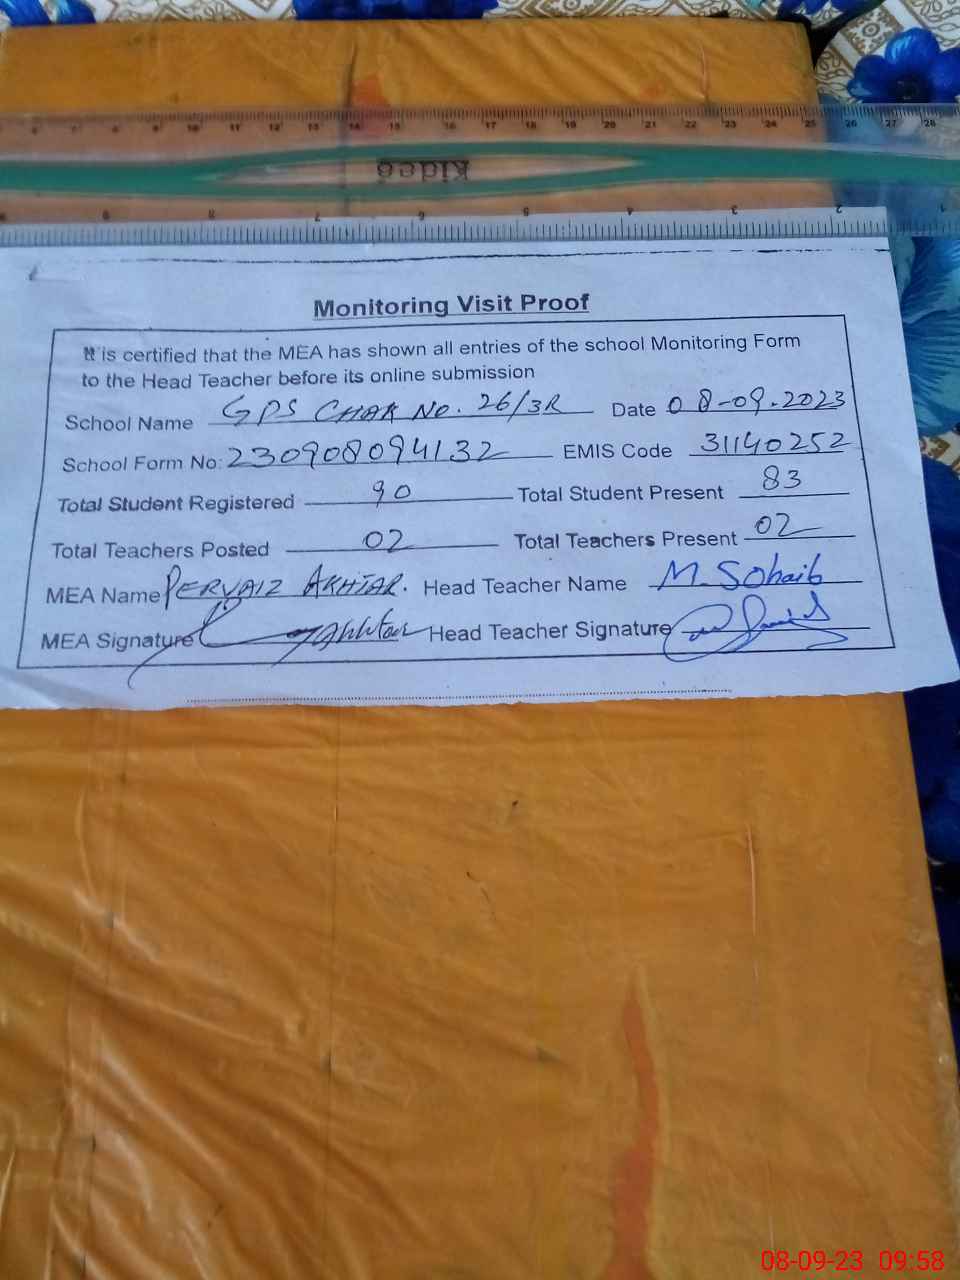 6 7 8 9 10 11 12 13 14 15 16 17 18 19 20 21 22 23 24 25 26 27 28
kideg
9 8 7 6 5 4 3 2 1
Monitoring Visit Proof
It is certified that the MEA has shown all entries of the school Monitoring Form
to the Head Teacher before its online submission
School Name GPS CHAK NO. 26/3R Date 08-09-2023
School Form No: 230908094132 EMIS Code 31140252
Total Student Registered 90 Total Student Present 83
Total Teachers Posted 02 Total Teachers Present 02
MEA Name PERVAIZ AKHTAR. Head Teacher Name M. Sohaib
MEA Signature Head Teacher Signature
08-09-23 09:58